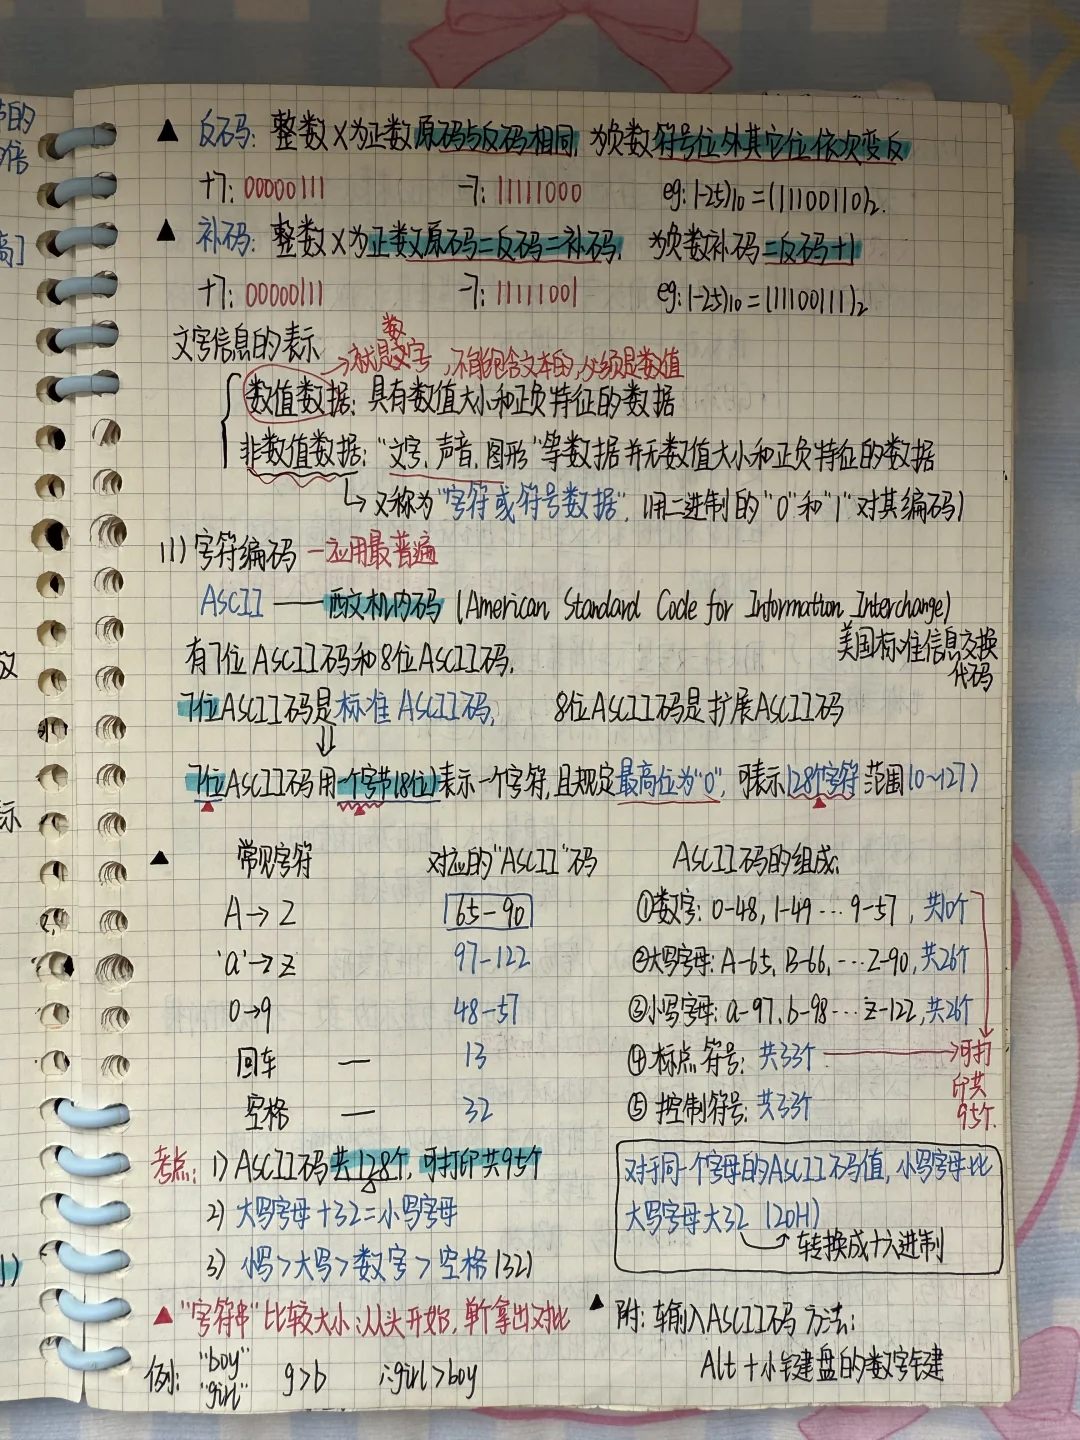 ▲ 反码: 整数X为正数原码与反码相同, 为负数符号位外其它位依次变反
+7: 00000111 -7: 11111000 eg: (-25)10 = (11100110)2.
▲ 补码: 整数X为正数原码=反码=补码, 为负数补码=反码+1
+7: 00000111 -7: 11111001 eg: (-25)10 = (11100111)2
文字信息的表示
→就是数字, 不能包含文本的, 必须是数值
数值数据: 具有数值大小和正负特征的数据
非数值数据: "文字、声音、图形"等数据并无数值大小和正负特征的数据
↳ 又称为"字符或符号数据", (用二进制的"0"和"1"对其编码)
(1) 字符编码 —应用最普遍
ASCII —— 西文机内码 (American Standard Code for Information Interchange)
美国标准信息交换
代码
有7位ASCII码和8位ASCII码,
7位ASCII码是标准ASCII码, 8位ASCII码是扩展ASCII码
⇓
7位ASCII码用一个字节(8位)表示一个字符, 且规定最高位为"0", 可表示128个字符 范围(0~127)
▲ 常见字符 对应的"ASCII"码 ASCII码的组成:
A→Z 65-90 ①数字: 0-48, 1-49 … 9-57, 共10个
'a'→z 97-122 ②大写字母: A-65, B-66, … Z-90, 共26个
0→9 48-57 ③小写字母: a-97, b-98 … z-122, 共26个
回车 — 13 ④标点符号: 共33个 → 可打
印共
95个.
空格 — 32 ⑤ 控制符号: 共33个
考点: 1) ASCII码共128个, 可打印共95个
2) 大写字母+32=小写字母
3) 小写>大写>数字>空格(32)
对于同一个字母的ASCII码值, 小写字母比
大写字母大32 (20H)
转换成十六进制
▲ "字符串"比较大小: 从头开始, 单个拿出对比
例: "boy"
"girl" g>b ∴girl>boy
▲ 附: 输入ASCII码方法:
Alt+小键盘的数字键